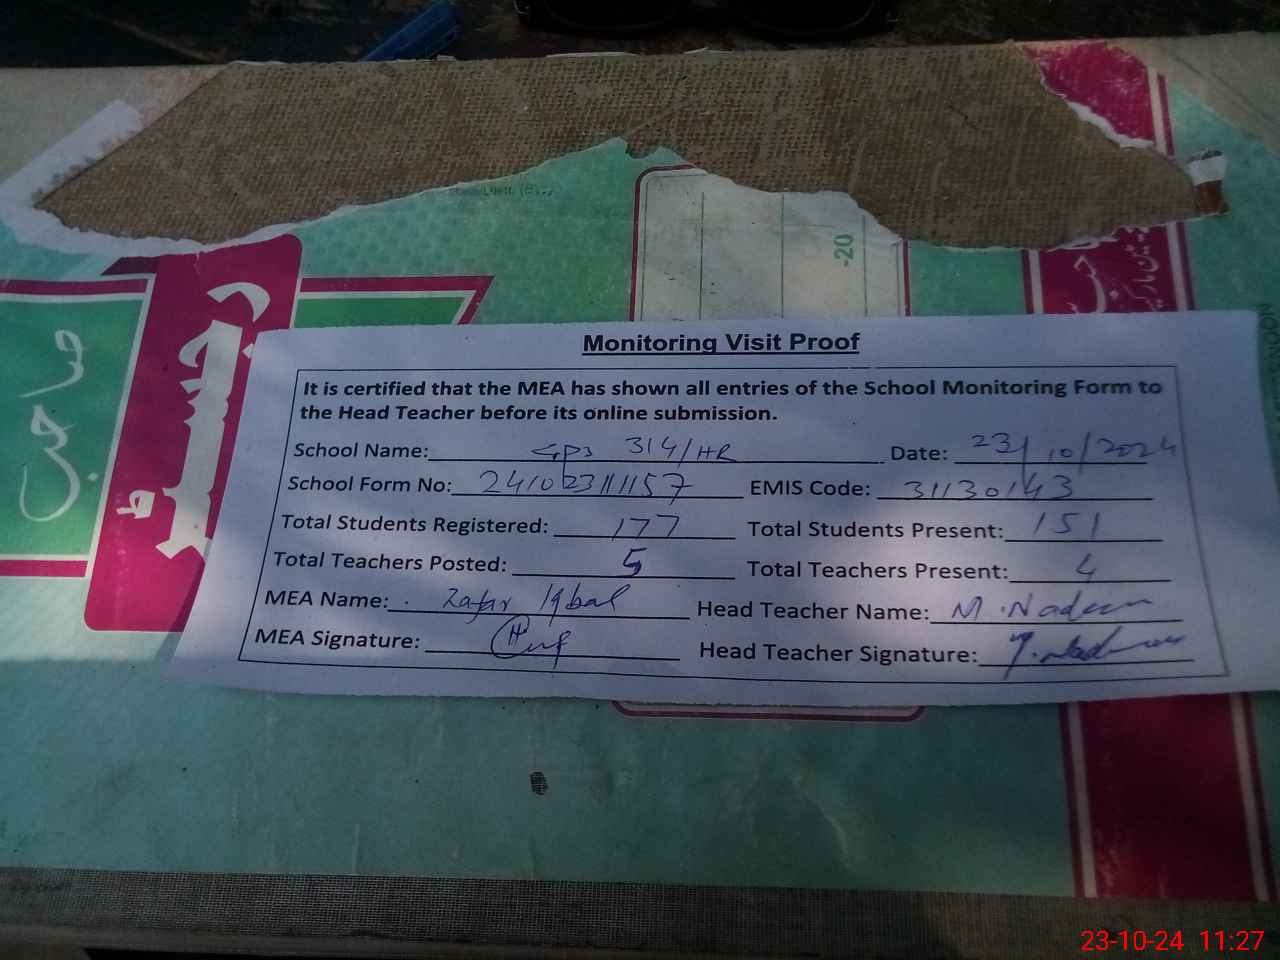 -20
رجسٹر
صاحب
Monitoring Visit Proof
It is certified that the MEA has shown all entries of the School Monitoring Form to
the Head Teacher before its online submission.
School Name: GPS 314/HR Date: 23/10/2024
School Form No: 241023111157 EMIS Code: 31130143
Total Students Registered: 177 Total Students Present: 151
Total Teachers Posted: 5 Total Teachers Present: 4
MEA Name: Zafar Iqbal Head Teacher Name: M. Nadeem
MEA Signature: Head Teacher Signature:
23-10-24 11:27